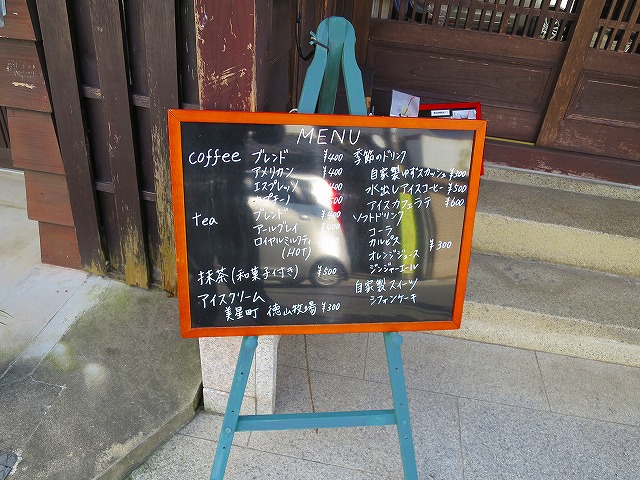 MENU
coffee ブレンド ¥400
アメリカン ¥400
エスプレッソ ¥400
カプチーノ
tea ブレンド ¥400
アールグレイ
ロイヤルミルクティ
(HOT)
抹茶(和菓子付き) ¥500
アイスクリーム
美星町 徳山牧場 ¥300
季節のドリンク
自家製ゆずスカッシュ ¥500
水出しアイスコーヒー ¥500
アイスカフェラテ ¥600
ソフトドリンク
コーラ
カルピス
¥300
オレンジジュース
ジンジャーエール
自家製スイーツ
シフォンケーキ